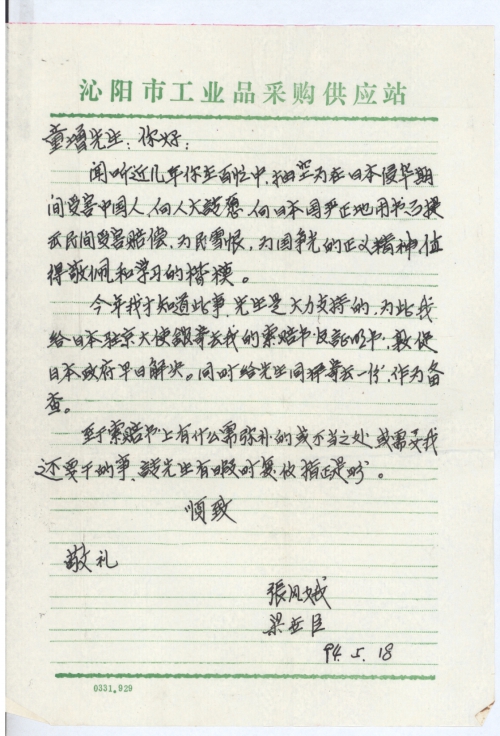 沁阳市工业品采购供应站
童增先生：你好：
闻听近几年你在百忙中，抽空为在日本侵华期
间受害中国人，向人大谈愿，向日本国严正地用书面提
示民间受害赔偿，为民雪恨，为国争光的正义精神值
得敬佩和学习的楷模。
今年我才知道此事，先生是大力支持的，为此我
给日本驻京大使馆寄去我的索赔书及证明书，敦促
日本政府早日解决。同时给先生同样寄去一份，作为备
查。
至于索赔书上有什么需弥补的或不当之处或需要我
还要干的事，请先生有暇时复信指正是盼。
顺致
敬礼
張凤娥
梁
94.5.18
0331.929